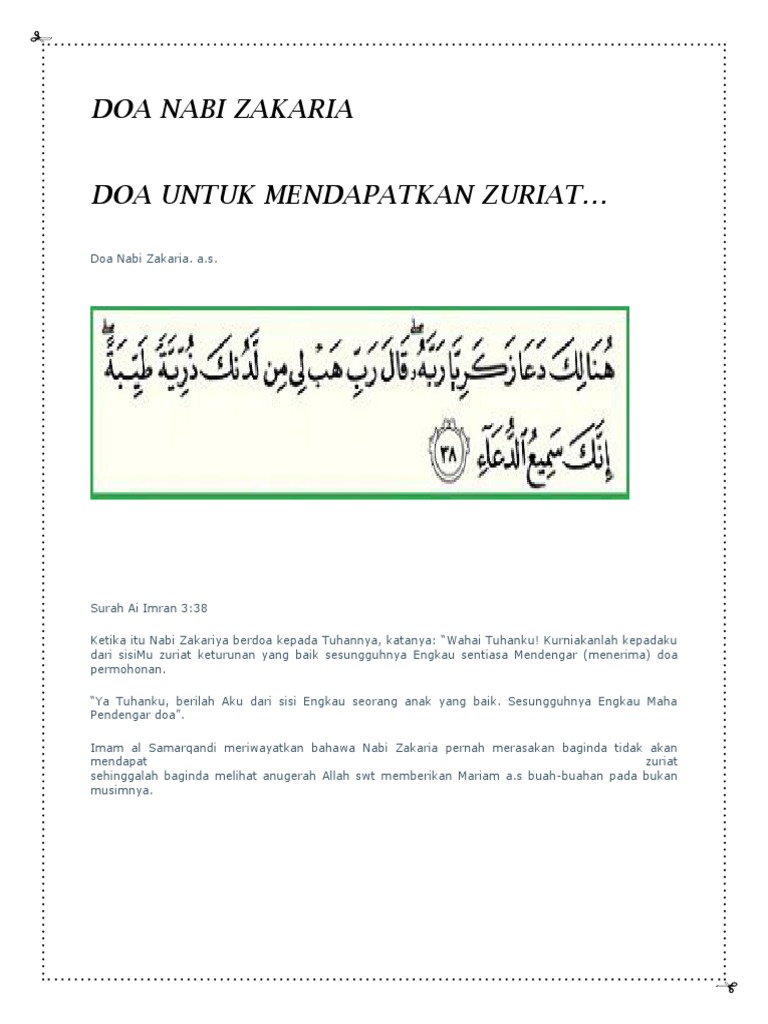 DOA NABI ZAKARIA
DOA UNTUK MENDAPATKAN ZURIAT...
Doa Nabi Zakaria. a.s.
هُنَالِكَ دَعَا زَكَرِيَّا رَبَّهُۥۖ قَالَ رَبِّ هَبْ لِى مِن لَّدُنكَ ذُرِّيَّةً طَيِّبَةًۖ
إِنَّكَ سَمِيعُ ٱلدُّعَآءِ ٣٨
Surah Ai Imran 3:38
Ketika itu Nabi Zakariya berdoa kepada Tuhannya, katanya: “Wahai Tuhanku! Kurniakanlah kepadaku
dari sisiMu zuriat keturunan yang baik sesungguhnya Engkau sentiasa Mendengar (menerima) doa
permohonan.
“Ya Tuhanku, berilah Aku dari sisi Engkau seorang anak yang baik. Sesungguhnya Engkau Maha
Pendengar doa”.
Imam al Samarqandi meriwayatkan bahawa Nabi Zakaria pernah merasakan baginda tidak akan
mendapat zuriat
sehinggalah baginda melihat anugerah Allah swt memberikan Mariam a.s buah-buahan pada bukan
musimnya.